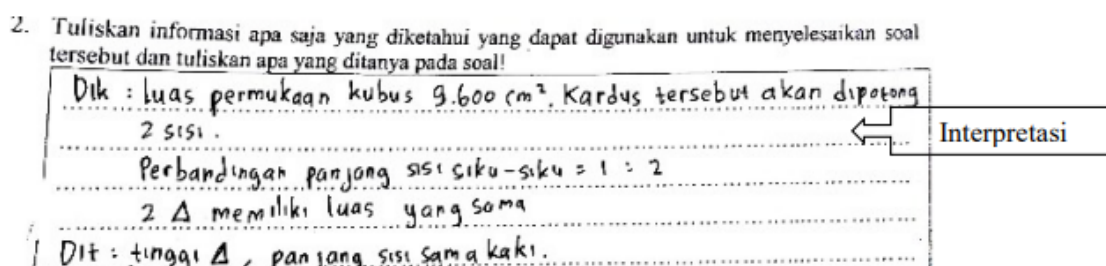 2. Tuliskan informasi apa saja yang diketahui yang dapat digunakan untuk menyelesaikan soal
tersebut dan tuliskan apa yang ditanya pada soal!
Dik : luas permukaan kubus 9.600 cm². Kardus tersebut akan dipotong
2 sisi.
Interpretasi
Perbandingan panjang sisi siku-siku = 1 : 2
2 Δ memiliki luas yang sama
Dit : tinggi Δ, panjang sisi sama kaki.